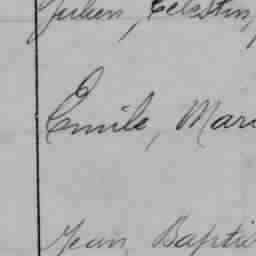 Julien, Célestin,
Emile, Mari
Jean Baptis